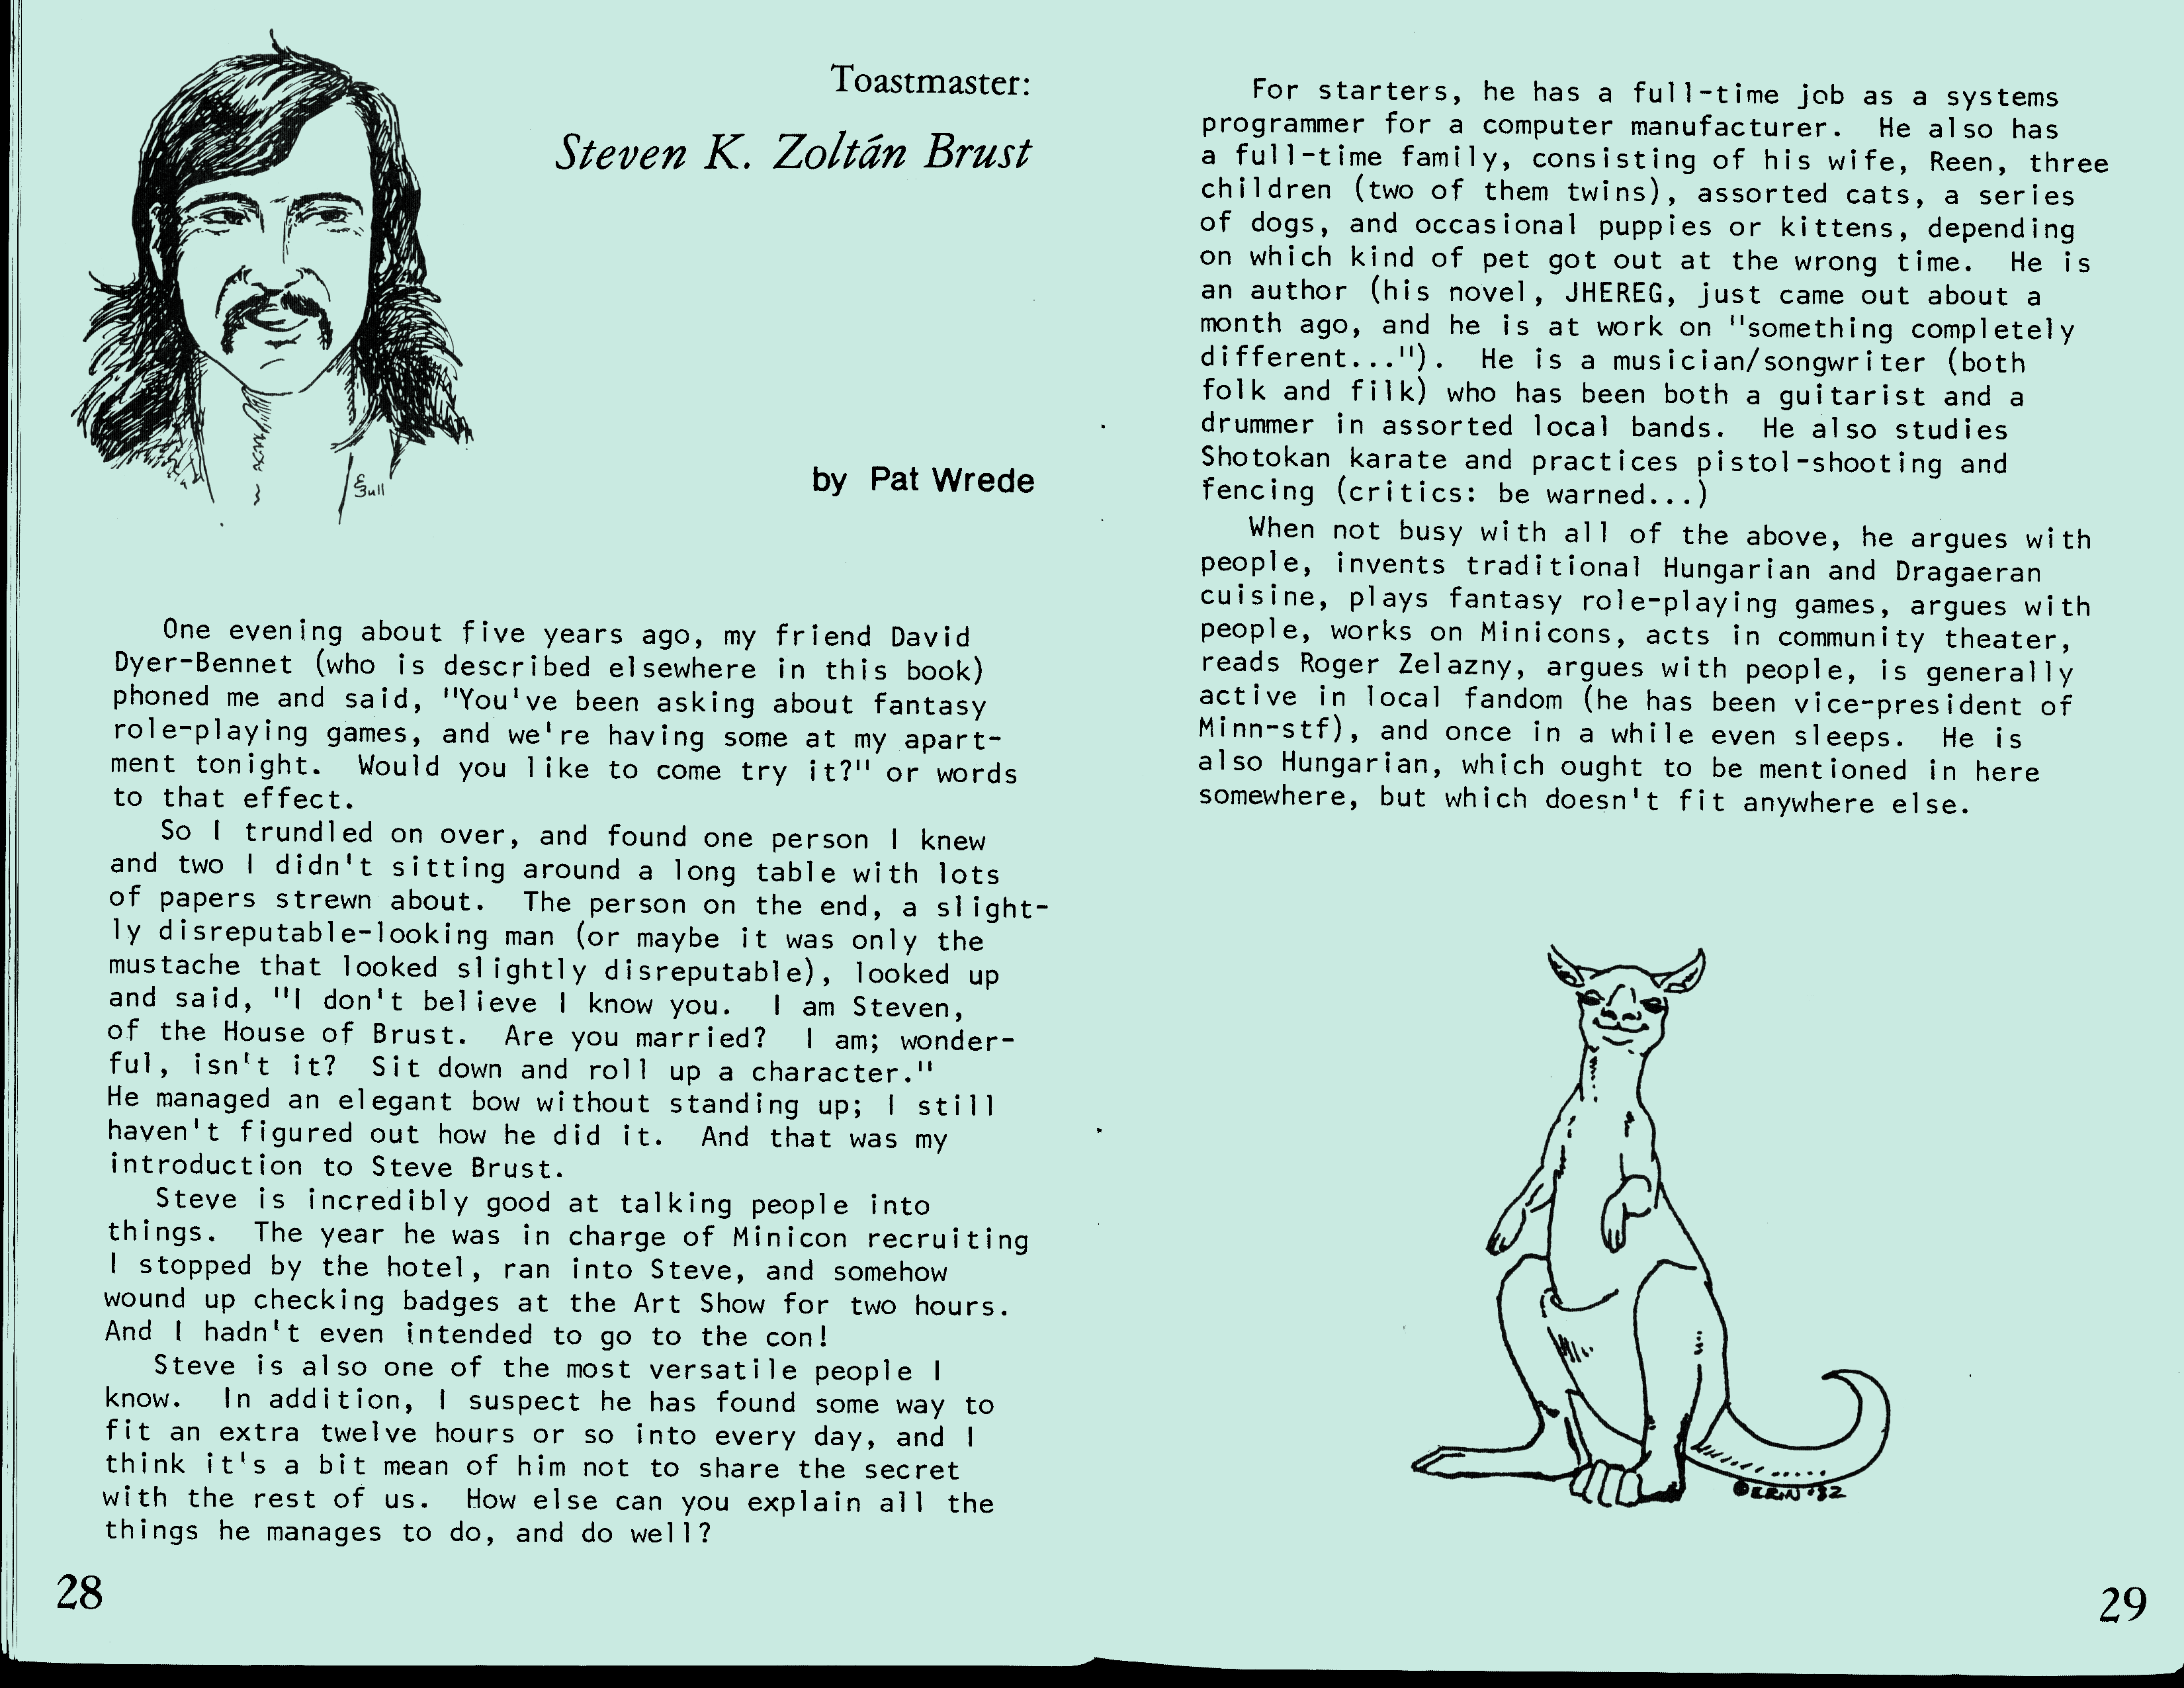 Toastmaster:
Steven K. Zoltán Brust
by Pat Wrede
One evening about five years ago, my friend David
Dyer-Bennet (who is described elsewhere in this book)
phoned me and said, "You've been asking about fantasy
role-playing games, and we're having some at my apart-
ment tonight. Would you like to come try it?" or words
to that effect.
So I trundled on over, and found one person I knew
and two I didn't sitting around a long table with lots
of papers strewn about. The person on the end, a slight-
ly disreputable-looking man (or maybe it was only the
mustache that looked slightly disreputable), looked up
and said, "I don't believe I know you. I am Steven,
of the House of Brust. Are you married? I am; wonder-
ful, isn't it? Sit down and roll up a character."
He managed an elegant bow without standing up; I still
haven't figured out how he did it. And that was my
introduction to Steve Brust.
Steve is incredibly good at talking people into
things. The year he was in charge of Minicon recruiting
I stopped by the hotel, ran into Steve, and somehow
wound up checking badges at the Art Show for two hours.
And I hadn't even intended to go to the con!
Steve is also one of the most versatile people I
know. In addition, I suspect he has found some way to
fit an extra twelve hours or so into every day, and I
think it's a bit mean of him not to share the secret
with the rest of us. How else can you explain all the
things he manages to do, and do well?
28
For starters, he has a full-time job as a systems
programmer for a computer manufacturer. He also has
a full-time family, consisting of his wife, Reen, three
children (two of them twins), assorted cats, a series
of dogs, and occasional puppies or kittens, depending
on which kind of pet got out at the wrong time. He is
an author (his novel, JHEREG, just came out about a
month ago, and he is at work on "something completely
different..."). He is a musician/songwriter (both
folk and filk) who has been both a guitarist and a
drummer in assorted local bands. He also studies
Shotokan karate and practices pistol-shooting and
fencing (critics: be warned...)
When not busy with all of the above, he argues with
people, invents traditional Hungarian and Dragaeran
cuisine, plays fantasy role-playing games, argues with
people, works on Minicons, acts in community theater,
reads Roger Zelazny, argues with people, is generally
active in local fandom (he has been vice-president of
Minn-stf), and once in a while even sleeps. He is
also Hungarian, which ought to be mentioned in here
somewhere, but which doesn't fit anywhere else.
©ERIN '82
29